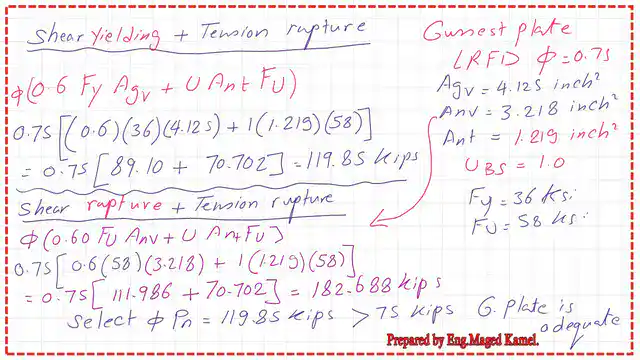 Shear Yielding + Tension rupture
Φ(0.6 Fy Agv + U Ant FU)
0.75[(0.6)(36)(4.125) + 1(1.219)(58)]
= 0.75[89.10 + 70.702] = 119.85 Kips
Shear rupture + Tension rupture
Φ(0.60 FU Anv + U Ant FU)
0.75[0.6(58)(3.218) + 1(1.219)(58)]
= 0.75[111.986 + 70.702] = 182.688 Kips
Select Φ Pn = 119.85 Kips > 75 Kips G. Plate is adequate
Gusset plate
LRFD Φ = 0.75
Agv = 4.125 inch²
Anv = 3.218 inch²
Ant = 1.219 inch²
UBS = 1.0
Fy = 36 Ksi
FU = 58 Ksi
Prepared by Eng.Maged Kamel.